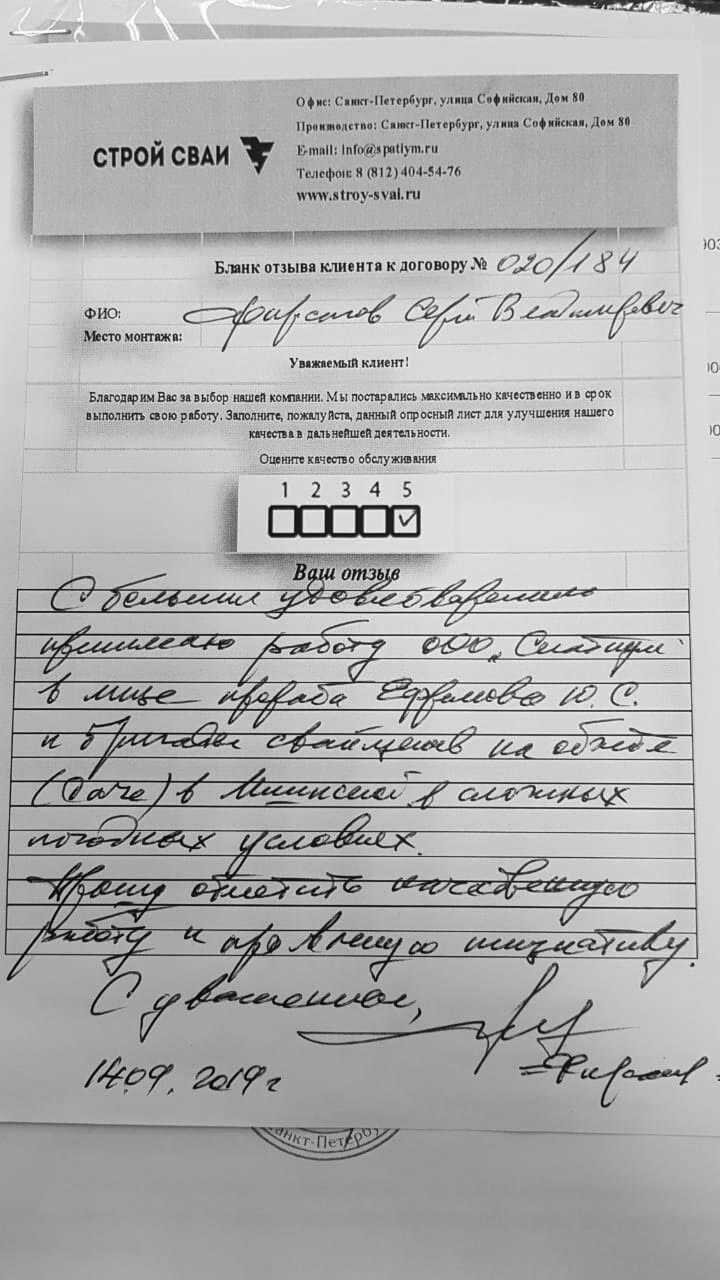 СТРОЙ СВАИ
Офис: Санкт-Петербург, улица Софийская, Дом 80
Производство: Санкт-Петербург, улица Софийская, Дом 80
E-mail: info@spatiym.ru
Телефон: 8 (812) 404-54-76
www.stroy-svai.ru
Бланк отзыва клиента к договору № 020/184
ФИО: Фирсанов Сергей Владимирович
Место монтажа:
Уважаемый клиент!
Благодарим Вас за выбор нашей компании. Мы постарались максимально качественно и в срок
выполнить свою работу. Заполните, пожалуйста, данный опросный лист для улучшения нашего
качества в дальнейшей деятельности.
Оцените качество обслуживания
1 2 3 4 5
Ваш отзыв
С большим удовлетворением
принимаю работу ООО "Спатиум"
в лице прораба Ефремова Ю.С.
и бригады свайщиков на объекте
(даче) в Мшинской в сложных
погодных условиях.
Прошу отметить качественную
работу и проявленную инициативу.
С уважением,
14.09.2019 г
Санкт-Петербу